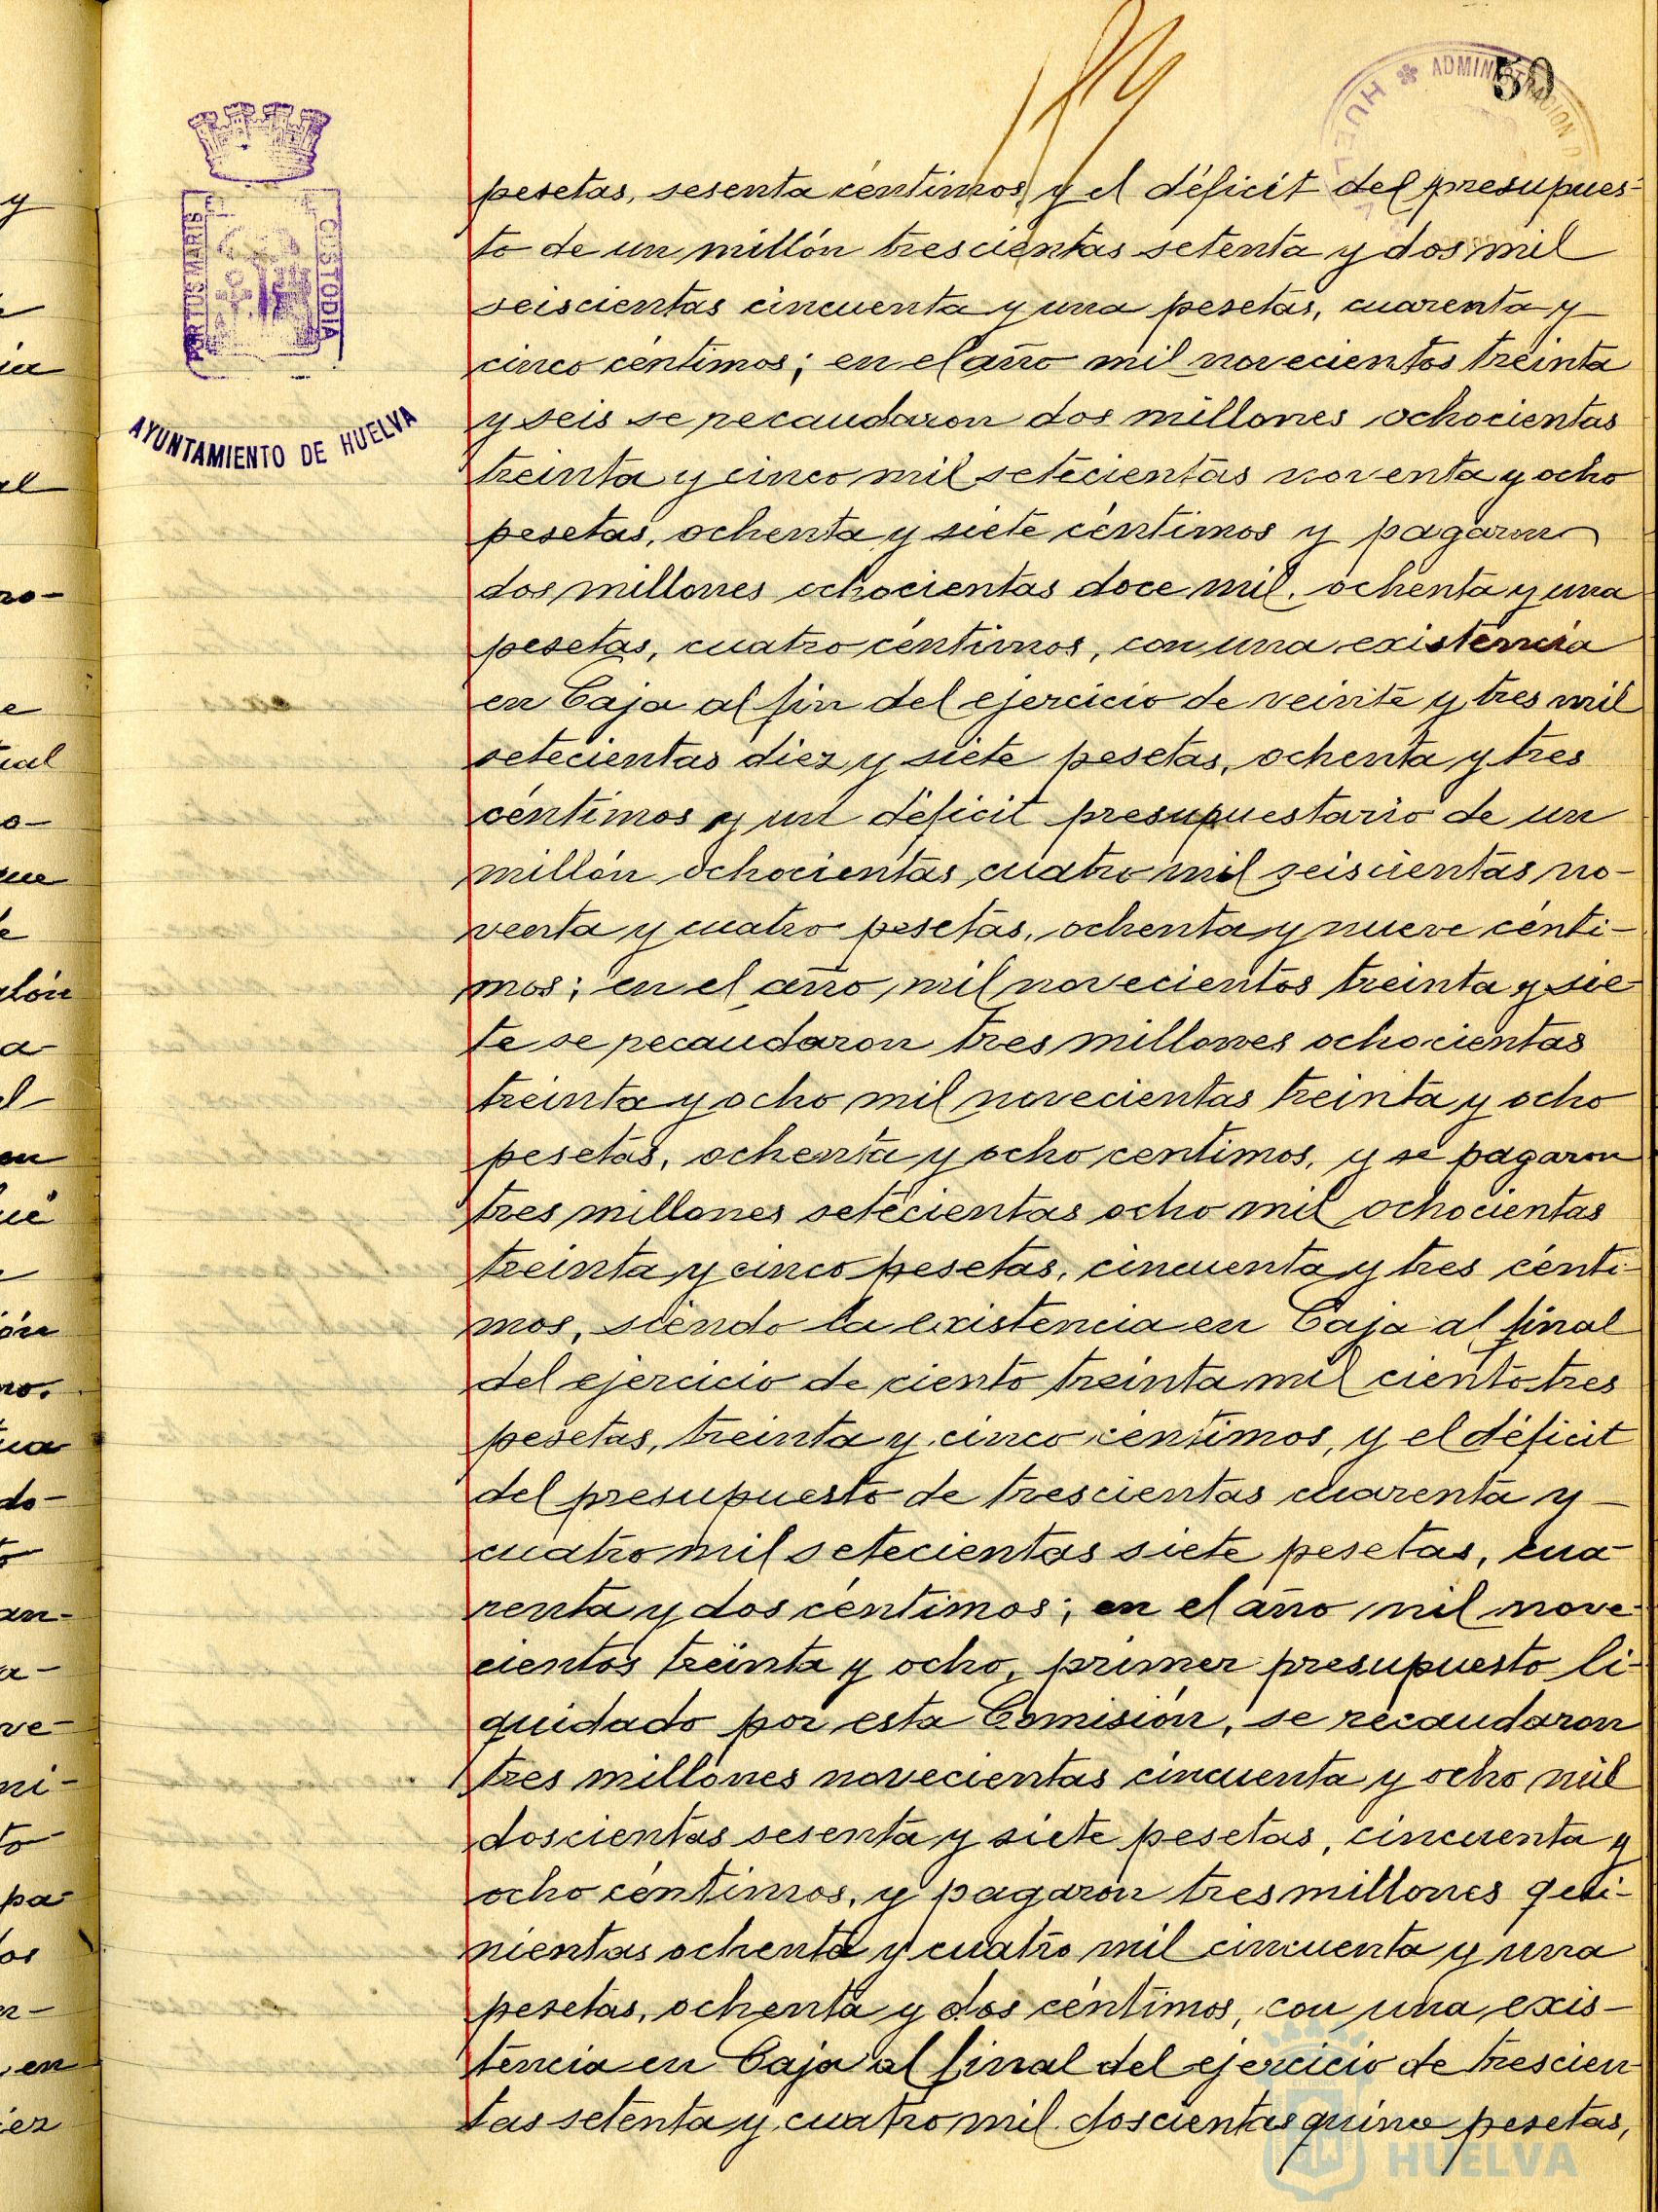 50
ADMINISTRACION D
HUELVA
PORTUS MARIS
CUSTODIA
AYUNTAMIENTO DE HUELVA
pesetas, sesenta céntimos y el déficit del presupues-
to de un millón trescientas setenta y dos mil
seiscientas cincuenta y una pesetas, cuarenta y
cinco céntimos; en el año mil novecientos treinta
y seis se recaudaron dos millones ochocientas
treinta y cinco mil setecientas noventa y ocho
pesetas, ochenta y siete céntimos y pagaron
dos millones ochocientas doce mil, ochenta y una
pesetas, cuatro céntimos, con una existencia
en Caja al fin del ejercicio de veinte y tres mil
setecientas diez y siete pesetas, ochenta y tres
céntimos y un déficit presupuestario de un
millón ochocientas cuatro mil seiscientas no-
venta y cuatro pesetas, ochenta y nueve cénti-
mos; en el año mil novecientos treinta y sie-
te se recaudaron tres millones ochocientas
treinta y ocho mil novecientas treinta y ocho
pesetas, ochenta y ocho centimos, y se pagaron
tres millones setecientas ocho mil ochocientas
treinta y cinco pesetas, cincuenta y tres cénti-
mos, siendo la existencia en Caja al final
del ejercicio de ciento treinta mil ciento tres
pesetas, treinta y cinco centimos, y el déficit
del presupuesto de trescientas cuarenta y
cuatro mil setecientas siete pesetas, cua-
renta y dos céntimos; en el año mil nove-
cientos treinta y ocho, primer presupuesto li-
quidado por esta Comisión, se recaudaron
tres millones novecientas cincuenta y ocho mil
doscientas sesenta y siete pesetas, cincuenta y
ocho céntimos, y pagaron tres millones qui-
nientas ochenta y cuatro mil cincuenta y una
pesetas, ochenta y dos céntimos, con una exis-
tencia en Caja al final del ejercicio de trescien-
tas setenta y cuatro mil doscientas quince pesetas,
HUELVA